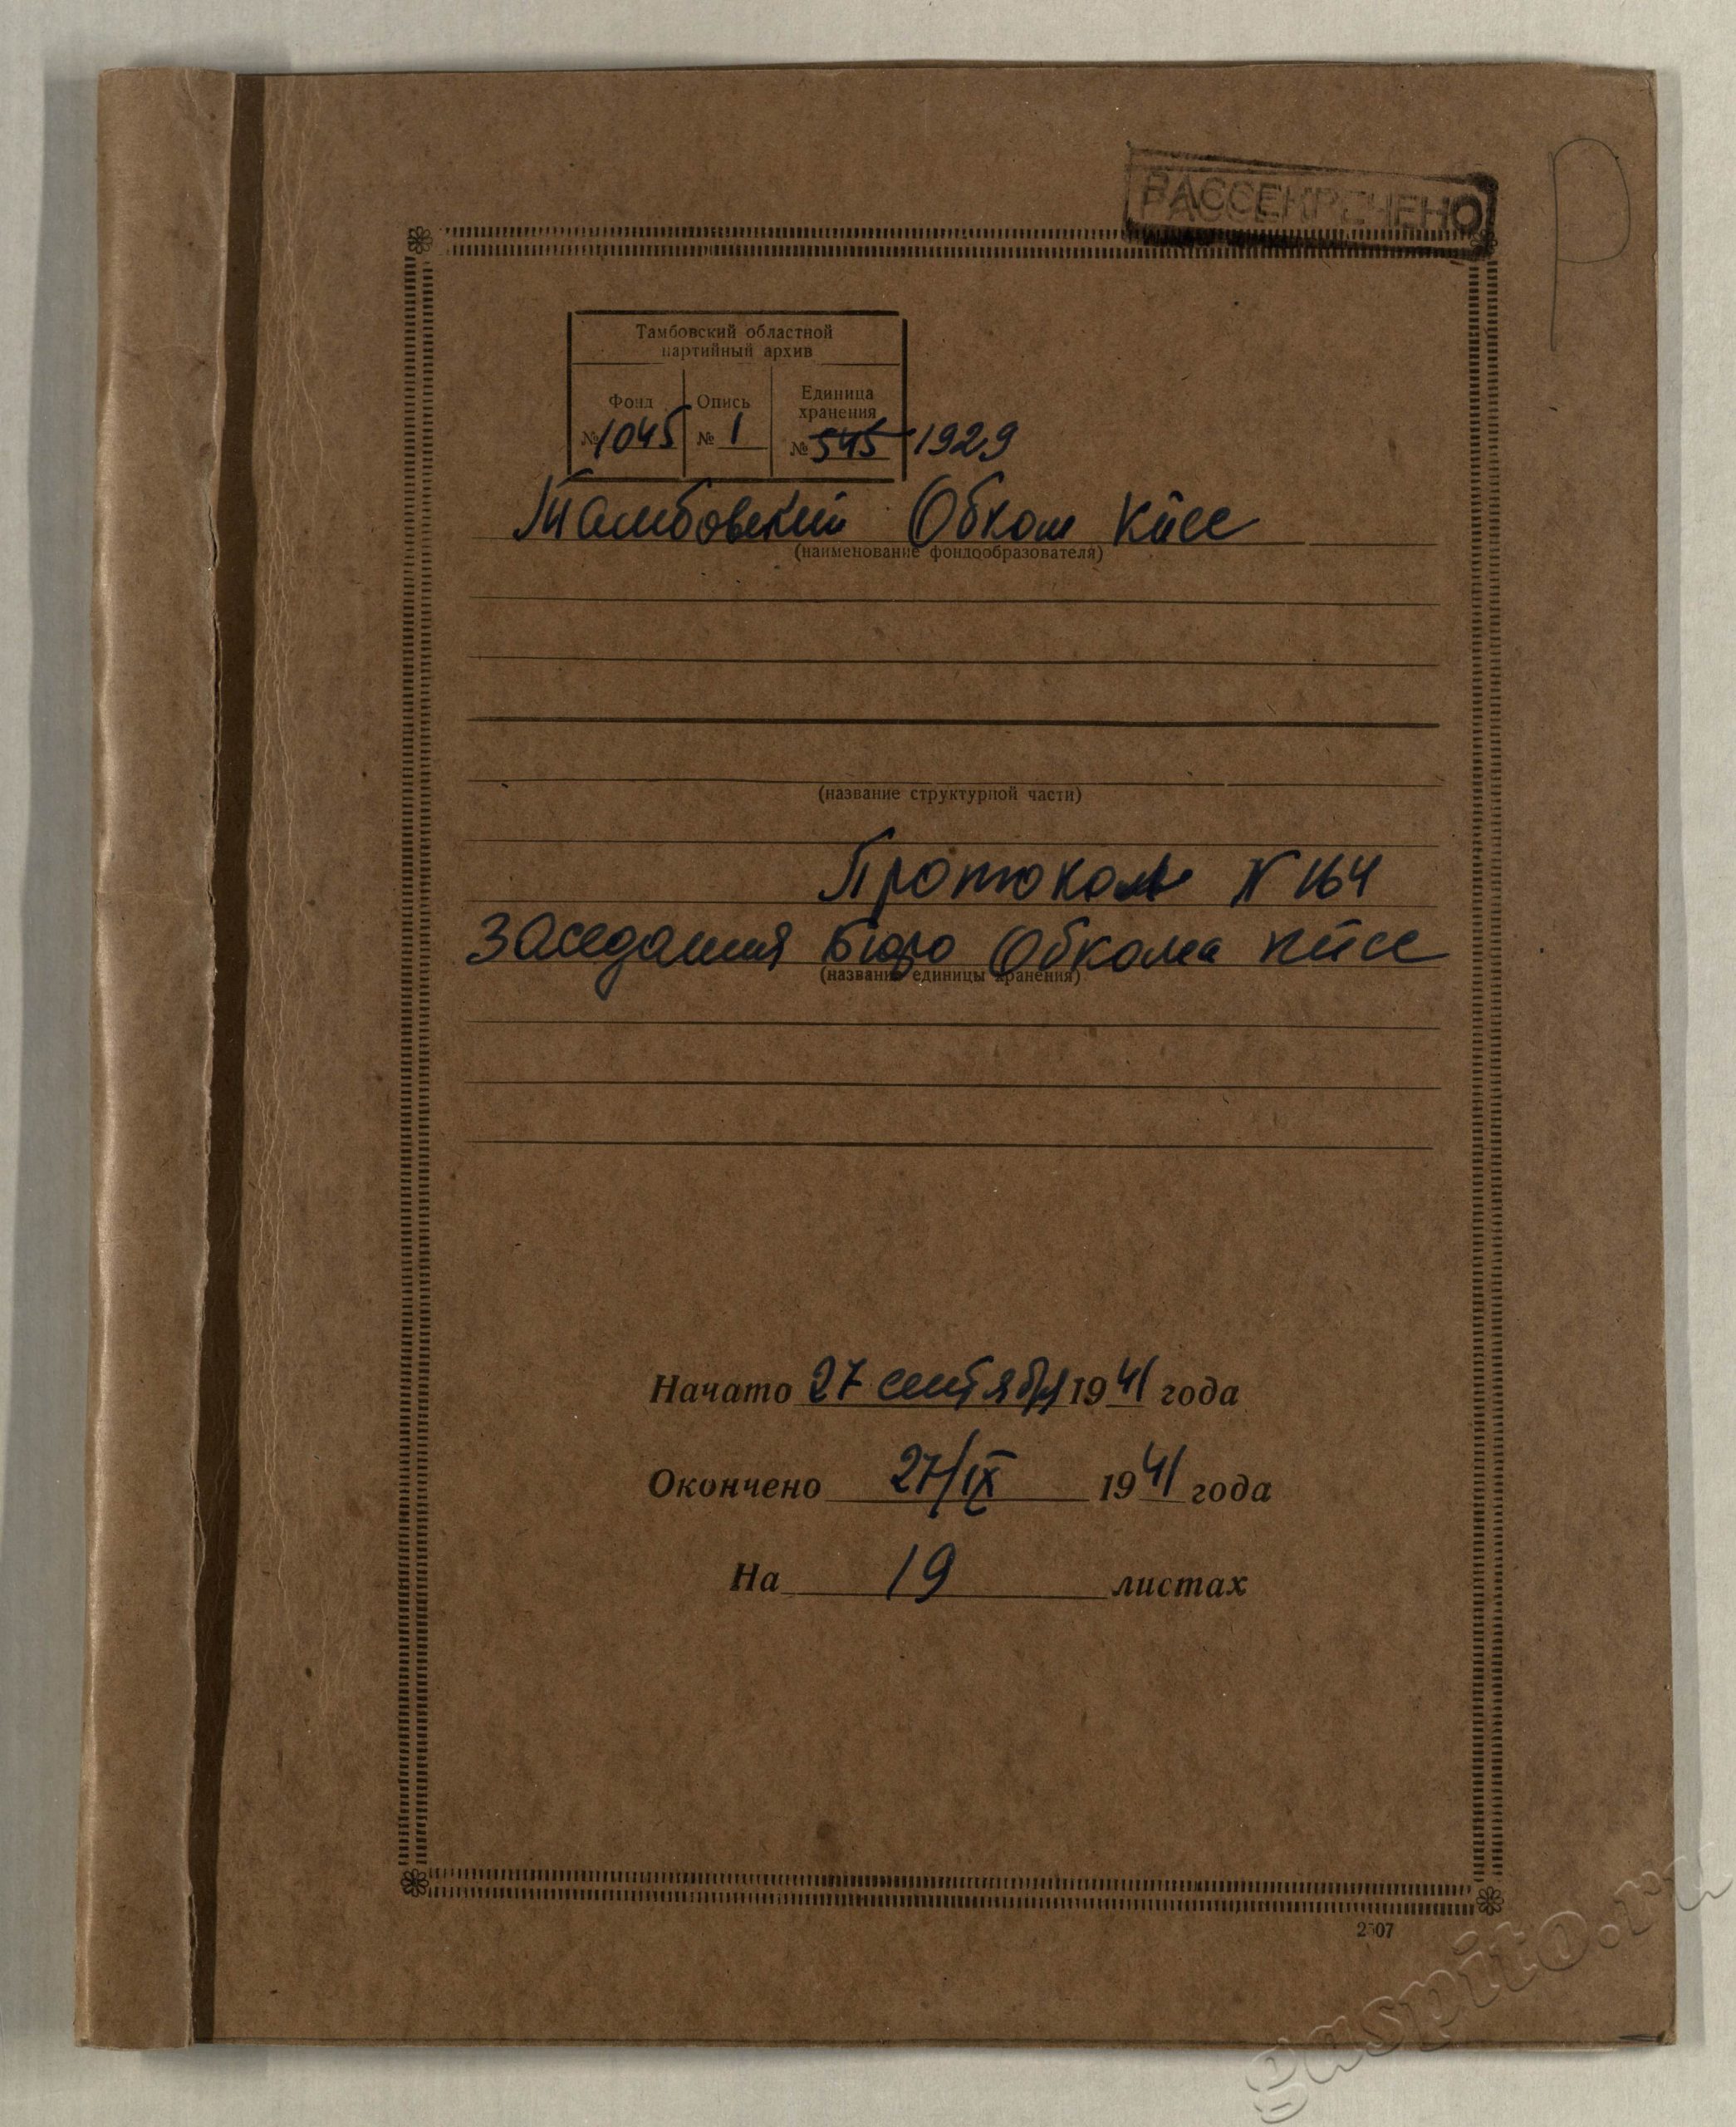 РАССЕКРЕЧЕНО
Р
Тамбовский областной
партийный архив
Фонд Опись Единица хранения
№ 1045 № 1 № 545 1929
Тамбовский Обком КПСС
(наименование фондообразователя)
(название структурной части)
Протокол № 164
Заседания Бюро Обкома КПСС
(название единицы хранения)
Начато 27 сентября 1941 года
Окончено 27/IX 1941 года
На 19 листах
2507
gaspito.ru